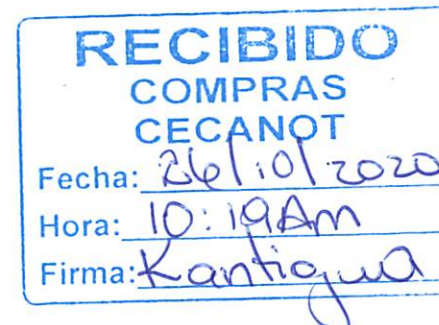 RECIBIDO
COMPRAS
CECANOT
Fecha: 26/10/2020
Hora: 10:19Am
Firma: Kantigua